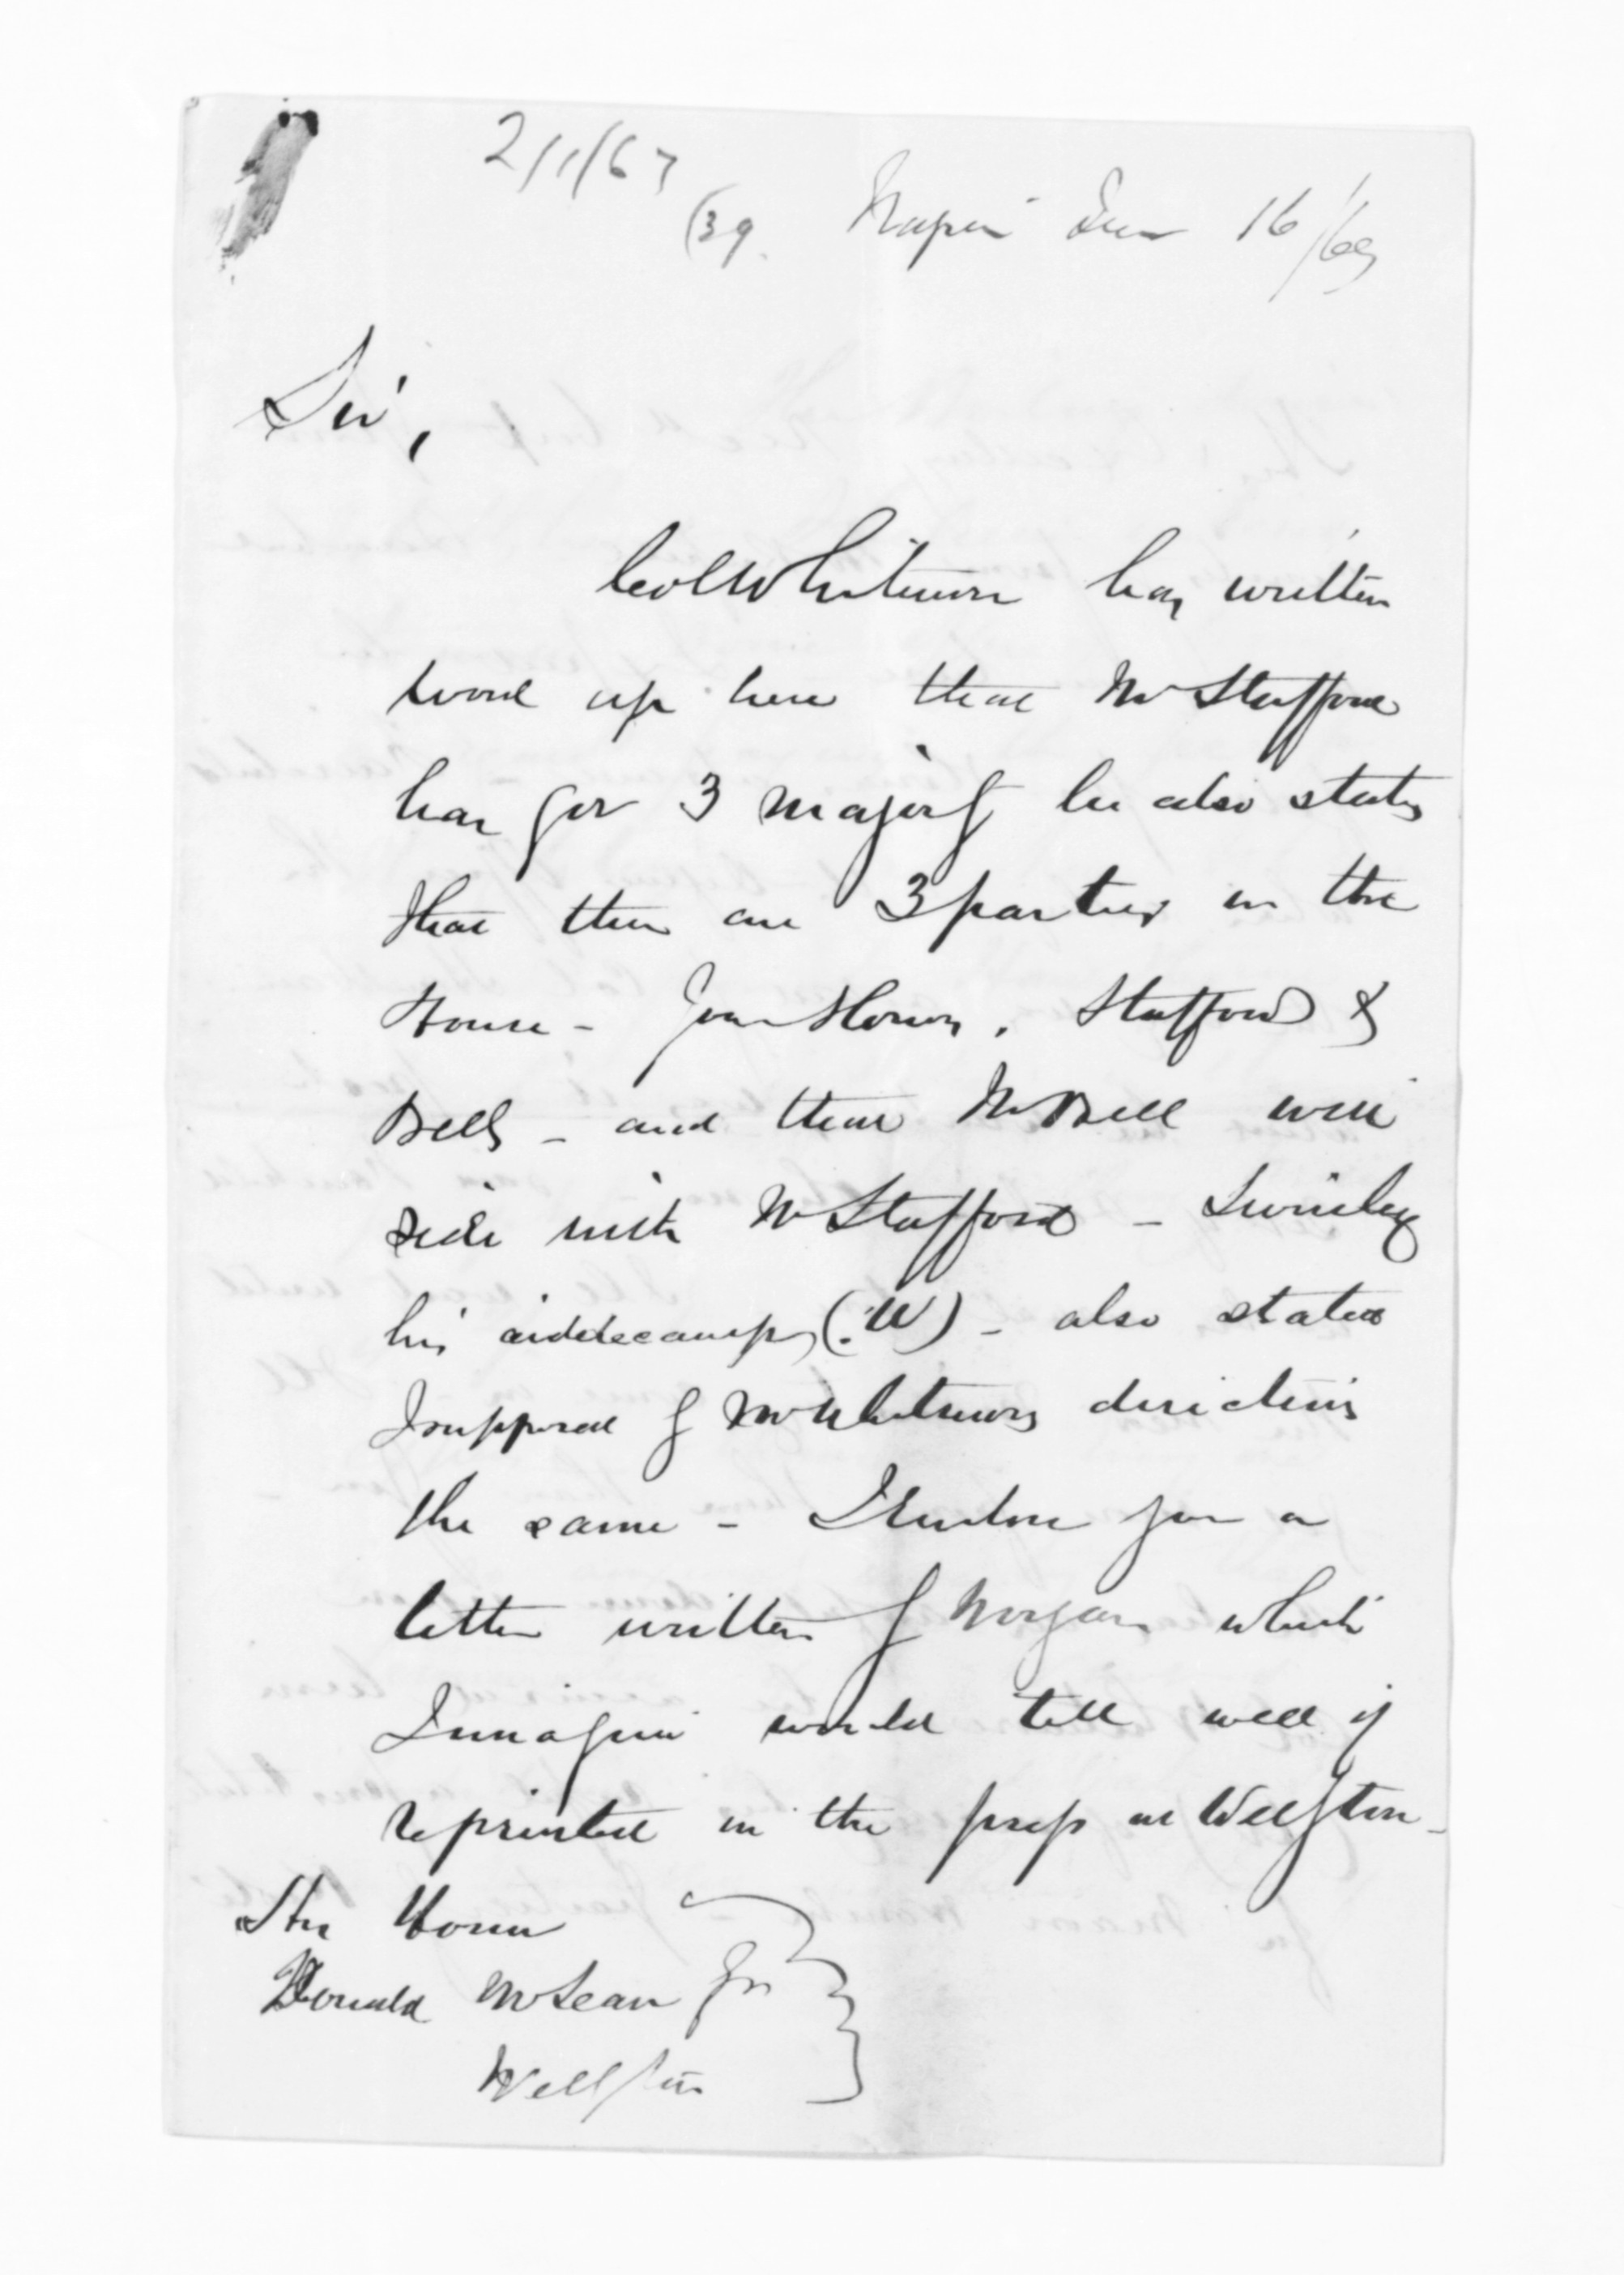 2/1/67
(39. Napier June 16/69
Sir,
Col Whitmore has written
word up here that Mr Stafford
has got 3 majority he also states
that there are 3 parties in the
House - Stafford &
Bells - and that Mr Bell will
side with Mr Stafford -
his aiddecamp (W) - also states
I suppose by Mr Whitmores directions
the same - I enclose you a
letter written by Morgan which
I imagine would tell well if
reprinted in the press at Wellgton -
The Honor
Donald McLean
Wellgton